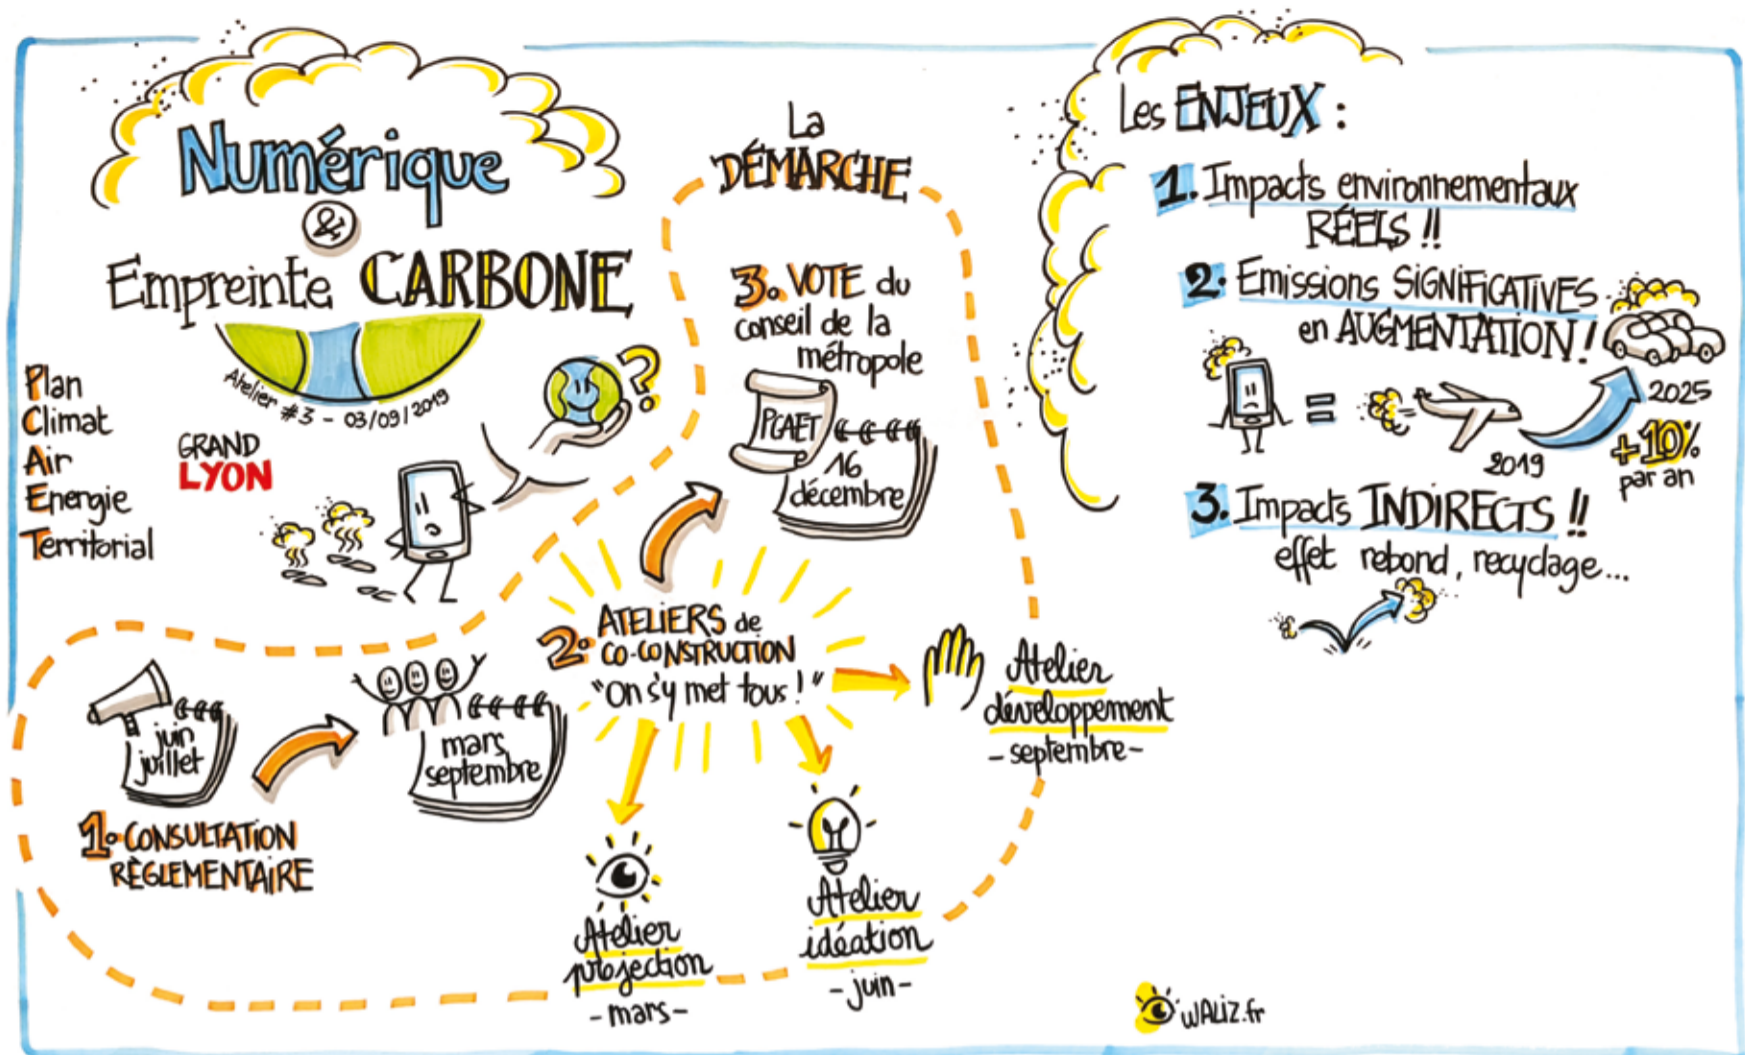 Numérique
&
Empreinte CARBONE
Atelier #3 - 03/09/2019
Plan
Climat
Air
Energie
Territorial
GRAND
LYON
?
La
DÉMARCHE
1. CONSULTATION
RÈGLEMENTAIRE
juin
juillet
mars
septembre
2. ATELIERS de
CO-CONSTRUCTION
"On s'y met tous !"
Atelier
projection
- mars -
Atelier
idéation
- juin -
Atelier
développement
- septembre -
3. VOTE du
conseil de la
métropole
PCAET
16
décembre
Les ENJEUX :
1. Impacts environnementaux
RÉELS !!
2. Emissions SIGNIFICATIVES
en AUGMENTATION !
=
2019
2025
+10%
par an
3. Impacts INDIRECTS !!
effet rebond, recyclage...
WALIZ.fr